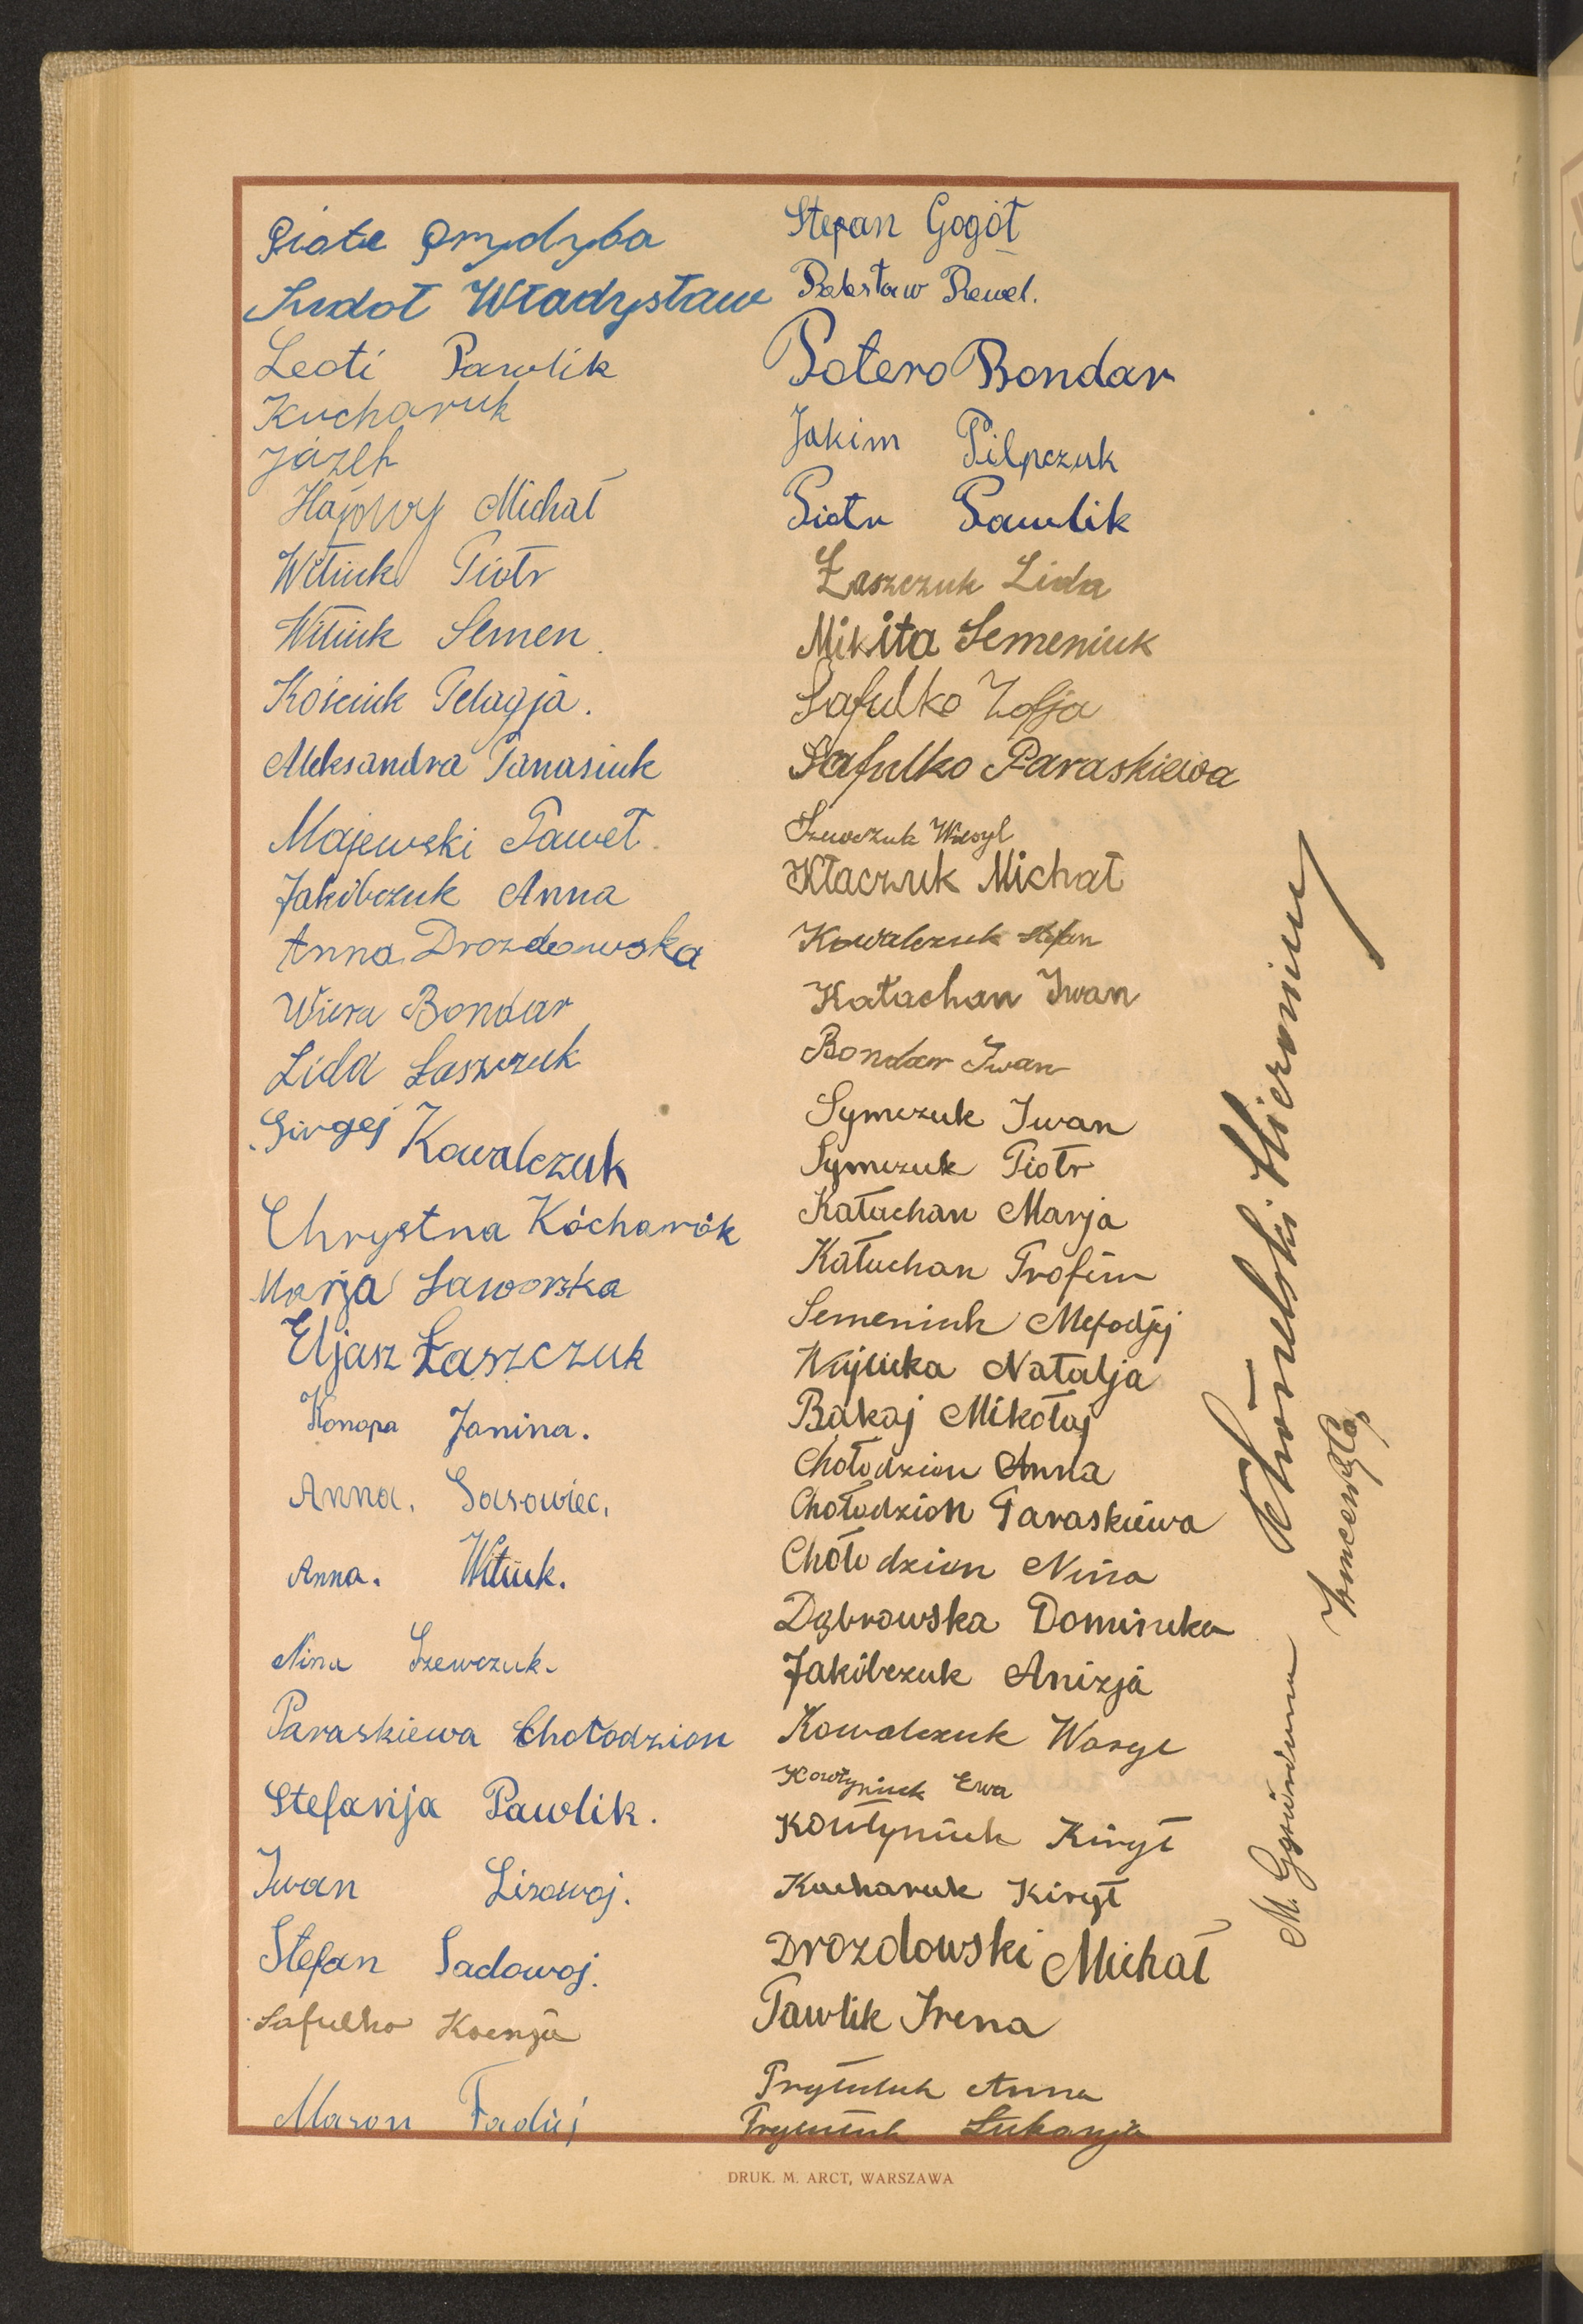 Piotr Przydyba
Sudoł Władysław
Leoti Pawlik
Kucharuk
Józef
Hajowy Michał
Wituk Piotr
Wituk Semen.
Kościuk Pelagja.
Aleksandra Panasiuk
Majewski Paweł.
Jakibczuk Anna
Anna Drozdowska
Wiera Bondar
Lida Łaszczuk
Girgej Kowalczuk
Chrystna Kócharók
Marja Jaworska
Eljasz Łaszczuk
Konopa Janina.
Anna. Sasowiec.
Anna. Wituk.
Nina Szewczuk.
Paraskiewa Chołodzion
Stefanja Pawlik.
Iwan Lisowoj.
Stefan Sadowoj.
Safulko Ksenja
Mazon Fadiej
Stefan Gogół
Bolesław Rewel.
Potero Bondar
Jakim Pilpczuk
Piotr Pawlik
Łaszczuk Lida
Mikita Semeniuk
Safulko Zofja
Safulko Paraskiewa
Szewczuk Wasyl
Kłaczuk Michał
Kowalczuk Stefan
Kałachan Iwan
Bondar Iwan
Symczuk Iwan
Symczuk Piotr
Kałachan Marja
Kałuchan Trofim
Semeniuk Mefodjej
Wójcicka Natalja
Bakaj Mikołaj
Chołodzion Anna
Chołodzion Paraskiewa
Chołodzion Nina
Dąbrowska Dominika
Jakibczuk Anizja
Kowalczuk Wasyl
Kowtyniuk Ewa
Kowtyniuk Kirył
Kucharuk Kirył
Drozdowski Michał
Pawlik Irena
Prytuluk Anna
Prytuluk Łukasja
Chómelski Hieronim
M.
DRUK. M. ARCT, WARSZAWA